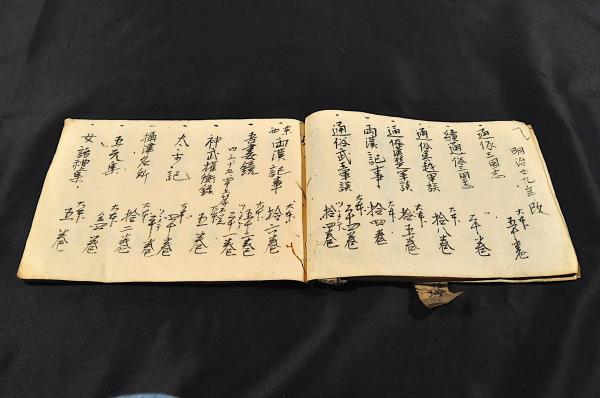 明治廿九年改
通俗三国志 大本 五十巻
續通俗三国志 大本 二十巻
通俗呉越軍談 大本 拾八巻
通俗漢楚軍談 大本 拾五巻
両漢記事 大本 拾四巻
通俗武王軍談 大本 拾四巻
東西両漢記事 大本 拾六巻
吾妻鏡 大本
神武権衡録 大本 五巻
太古記 大本 四十巻
攝津名所 大本 拾二巻
五元集 大本 巻
女諸禮集 大本 五巻